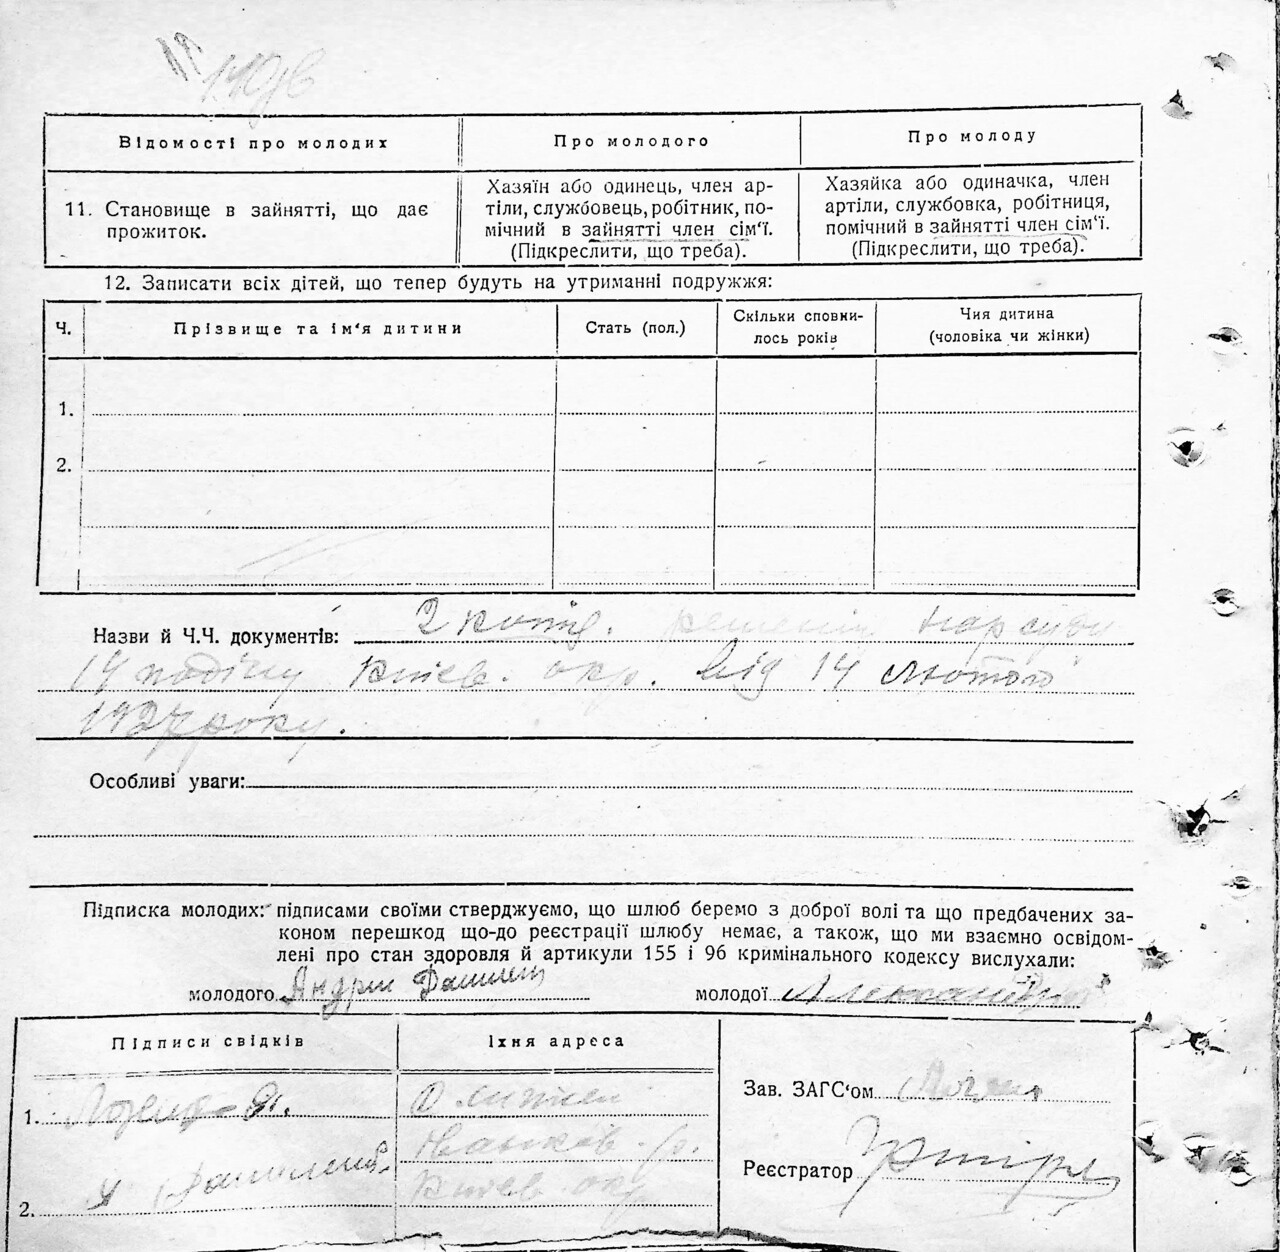 Відомості про молодих
Про молодого
Про молоду
11. Становище в зайнятті, що дає
прожиток.
Хазяїн або одинець, член ар-
тілі, службовець, робітник, по-
мічний в зайнятті член сім'ї.
(Підкреслити, що треба).
Хазяйка або одиначка, член
артілі, службовка, робітниця,
помічний в зайнятті член сім'ї.
(Підкреслити, що треба).
12. Записати всіх дітей, що тепер будуть на утриманні подружжя:
Ч.
Прізвище та ім'я дитини
Стать (пол.)
Скільки сповни-
лось років
Чия дитина
(чоловіка чи жінки)
1.
2.
Назви й Ч.Ч. документів: 2 нарсуду
14 Київ. окр. від 14 лютого
1927 року.
Особливі уваги:
Підписка молодих: підписами своїми стверджуємо, що шлюб беремо з доброї волі та що предбачених за-
коном перешкод що-до реєстрації шлюбу немає, а також, що ми взаємно освідом-
лені про стан здоровля й артикули 155 і 96 кримінального кодексу вислухали:
молодого
молодої
Підписи свідків
Їхня адреса
1.
Іванків. р.
Київ. окр.
2.
Зав. ЗАГС'ом
Реєстратор